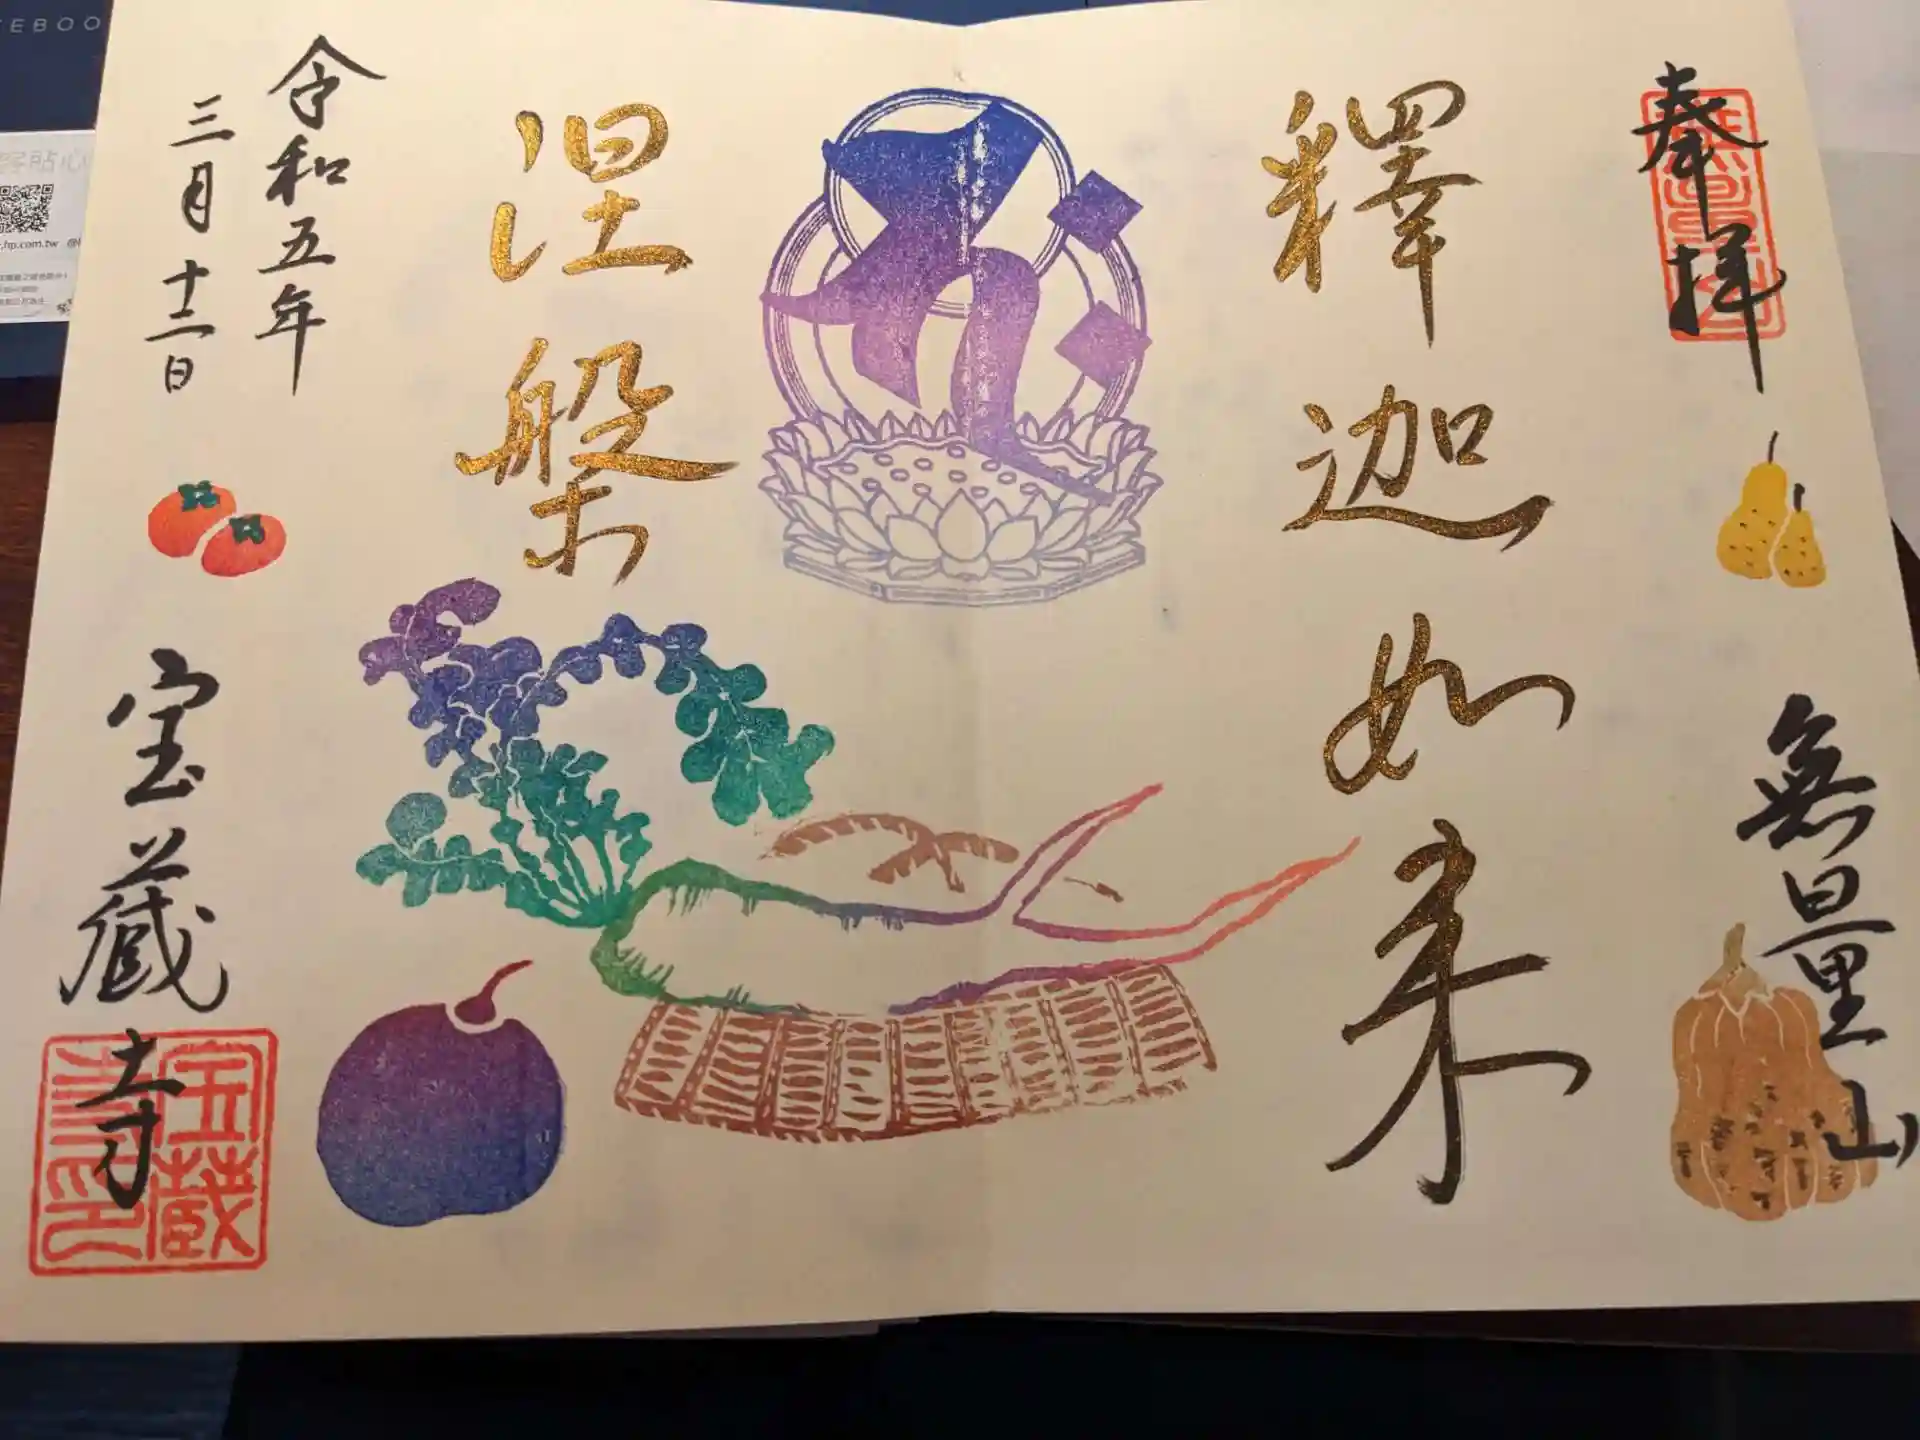 奉拝
無量山
釋迦如来
涅槃
令和五年
三月十二日
宝蔵寺
宝蔵
寺印
TEBOO